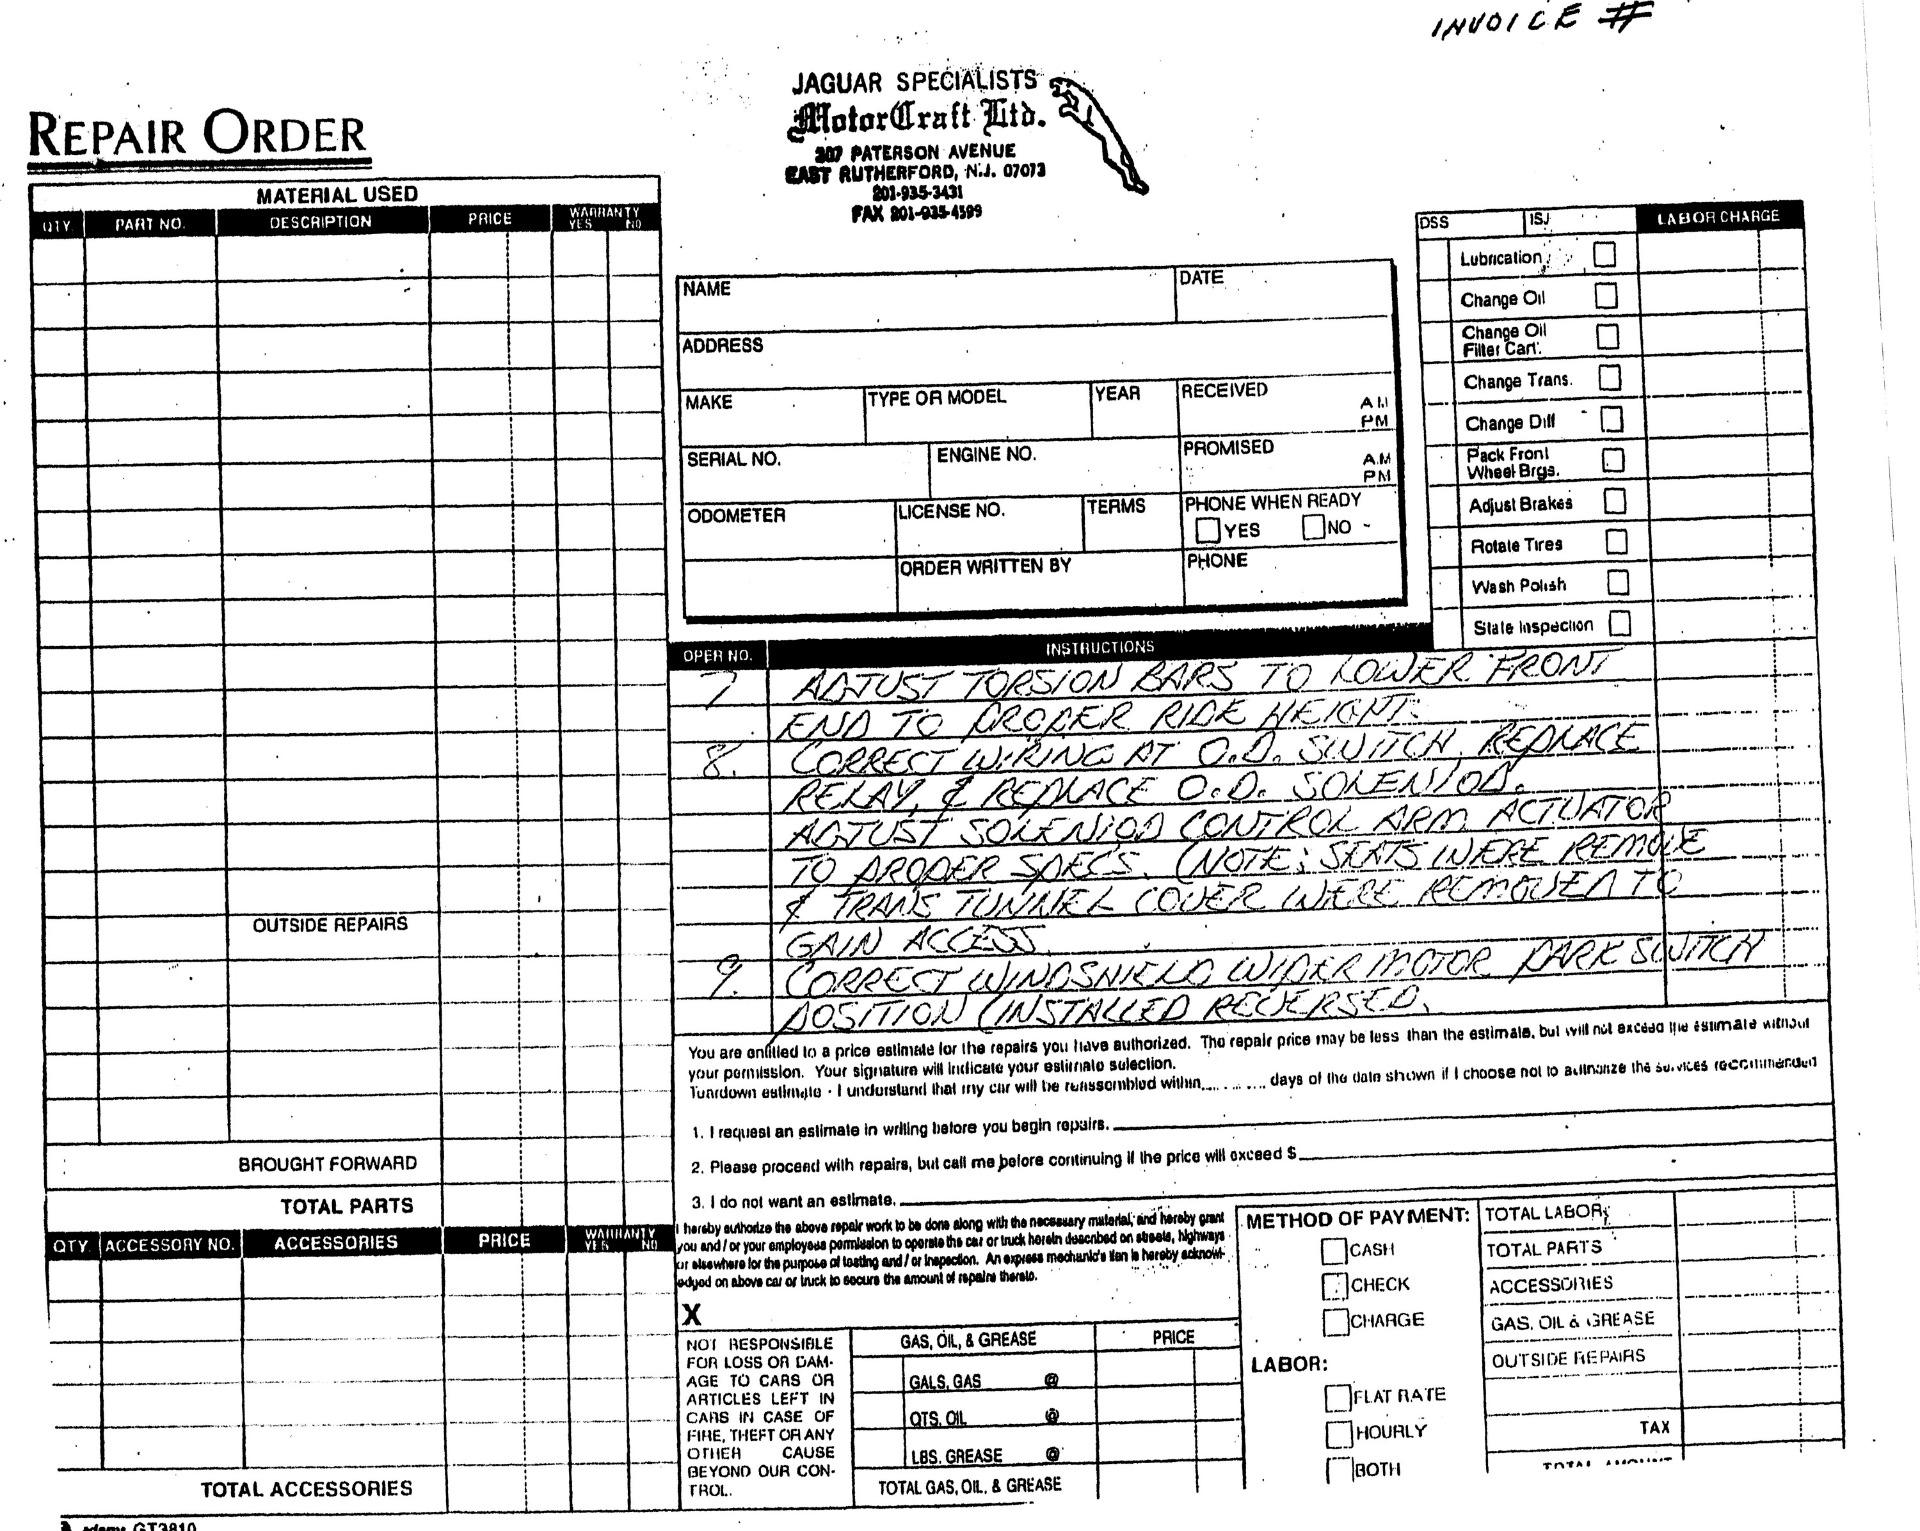 INVOICE #
JAGUAR SPECIALISTS
MotorCraft Ltd.
207 PATERSON AVENUE
EAST RUTHERFORD, N.J. 07073
201-935-3431
FAX 201-935-4599
REPAIR ORDER
MATERIAL USED
QTY. PART NO. DESCRIPTION PRICE WARRANTY YES NO
OUTSIDE REPAIRS
BROUGHT FORWARD
TOTAL PARTS
QTY. ACCESSORY NO. ACCESSORIES PRICE WARRANTY YES NO
TOTAL ACCESSORIES
GT3810
NAME DATE
ADDRESS
MAKE TYPE OR MODEL YEAR RECEIVED AM PM
SERIAL NO. ENGINE NO. PROMISED A.M PM
ODOMETER LICENSE NO. TERMS PHONE WHEN READY
YES NO
ORDER WRITTEN BY PHONE
DSS ISJ LABOR CHARGE
Lubrication
Change Oil
Change Oil
Filter Cart.
Change Trans.
Change Diff
Pack Front
Wheel Brgs.
Adjust Brakes
Rotate Tires
Wash Polish
State Inspection
OPER NO. INSTRUCTIONS
7 ADJUST TORSION BARS TO LOWER FRONT
END TO PROPER RIDE HEIGHT.
8. CORRECT WIRING AT O.D. SWITCH. REPLACE
RELAY, & REPLACE O.D. SOLENIOD.
ADJUST SOLENIOD CONTROL ARM ACTUATOR
TO PROPER SPECS. (NOTE; SEATS WERE REMOVE
& TRANS TUNNEL COVER WERE REMOVED TO
GAIN ACCESS.
9. CORRECT WINDSHIELD WIPER MOTOR PARK SWITCH
POSITION (INSTALLED REVERSED.
You are entitled to a price estimate for the repairs you have authorized. The repair price may be less than the estimate, but will not exceed the estimate without
your permission. Your signature will indicate your estimate selection.
Teardown estimate - I understand that my car will be reassembled within........... days of the date shown if I choose not to authorize the services recommended
1. I request an estimate in writing before you begin repairs.
2. Please proceed with repairs, but call me before continuing if the price will exceed $
3. I do not want an estimate.
I hereby authorize the above repair work to be done along with the necessary material, and hereby grant
you and / or your employees permission to operate the car or truck herein described on streets, highways
or elsewhere for the purpose of testing and / or inspection. An express mechanic's lien is hereby acknowl-
edged on above car or truck to secure the amount of repairs thereto.
X
NOT RESPONSIBLE
FOR LOSS OR DAM-
AGE TO CARS OR
ARTICLES LEFT IN
CARS IN CASE OF
FIRE, THEFT OR ANY
OTHER CAUSE
BEYOND OUR CON-
TROL.
GAS, OIL, & GREASE PRICE
GALS, GAS @
QTS, OIL @
LBS, GREASE @
TOTAL GAS, OIL, & GREASE
METHOD OF PAYMENT:
CASH
CHECK
CHARGE
LABOR:
FLAT RATE
HOURLY
BOTH
TOTAL LABOR
TOTAL PARTS
ACCESSORIES
GAS, OIL & GREASE
OUTSIDE REPAIRS
TAX
TOTAL AMOUNT